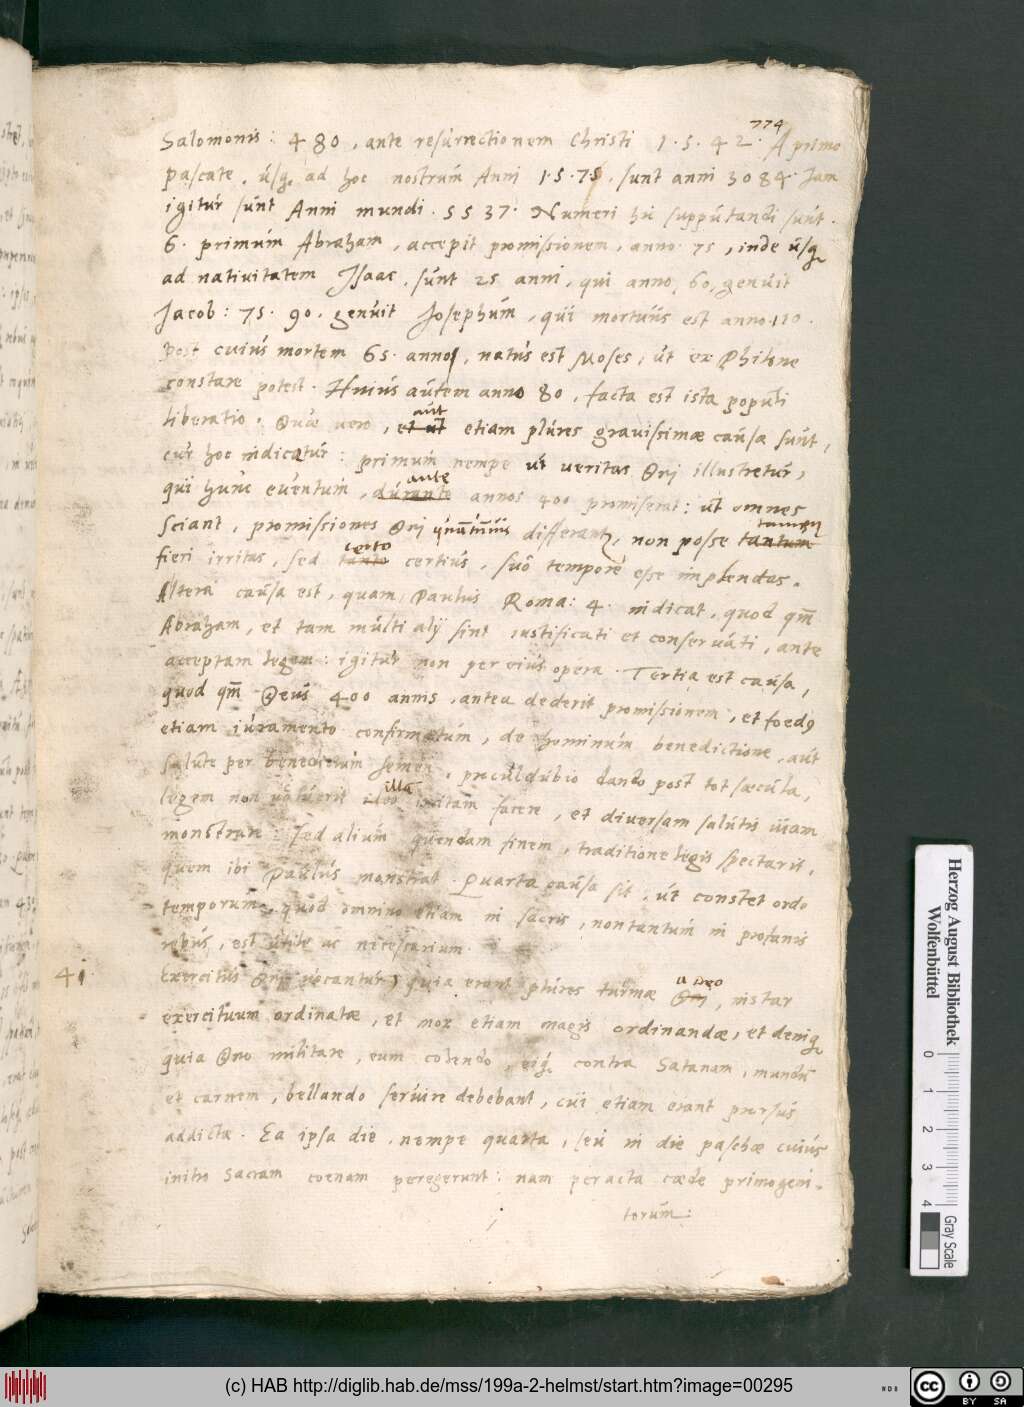 774
Salomonis: 480, ante resurrectionem Christi 1.5.42. A primo
pascate, usq. ad hoc nostrum Anni 1.5.75, sunt anni 3084. Jam
igitur sunt Anni mundi. 5537. Numeri hic supputandi sunt.
6. primum Abraham, accepit promissionem, anno. 75, inde usq
ad nativitatem Isaac, sunt 25 anni, qui anno, 60, genuit
Jacob: 75. 90. genuit Josephum, qui mortuus est anno 110.
post cuius mortem 65. annos, natus est Moses, ut ex Philone
constare potest. Huius autem anno 80, facta est ista populi
liberatio. Quae vero, et ut aut etiam plures gravissimae causa sunt,
cur hoc indicatur: primum nempe ut veritas Dni illustretur,
qui hunc eventum, durante ante annos 400 promiserat: ut omnes
sciant, promissiones Dni differantur, non posse tantum tamen
fieri irritas, sed tanto certo certius, suo tempore esse implendas.
Altera causa est, quam Paulus Roma: 4. indicat, quod qm
Abraham, et tam multi alij sint iustificati et conservati, ante
acceptam legem: igitur non per eius opera. Tertia est causa,
quod qm Deus 400 annis, antea dederit promissionem, et foedg
etiam iuramento confirmatum, de hominum benedictione, aut
salute per benedictum semen, proculdubio dando post tot saecula,
legem non voluerit illa irritam facere, et diversam salutis viam
monstrare: sed alium quendam finem, traditione legis spectarit,
quem ibi Paulus monstrat. Quarta causa sit, ut constet ordo
temporum, quod omnino etiam in sacris, non tantum in profanis
rebus, est utile ac necessarium.
41. Exercitus Dni vocantur, quia erant plures turmae Dni a Deo, instar
exercituum ordinatae, et mox etiam magis ordinandae, et deniq
quia Dno militare, eum colendo, eiq. contra Satanam, mundu
et carnem, bellando servire debebant, cui etiam erant prorsus
addicta. Ea ipsa die, nempe quarta, seu in die paschae cuius
initio Sacram coenam peregerunt: nam peracta caede primogeni-
torum:
Herzog August Bibliothek
Wolfenbüttel
0 1 2 3 4
Gray Scale
(c) HAB http://diglib.hab.de/mss/199a-2-helmst/start.htm?image=00295
cc BY SA